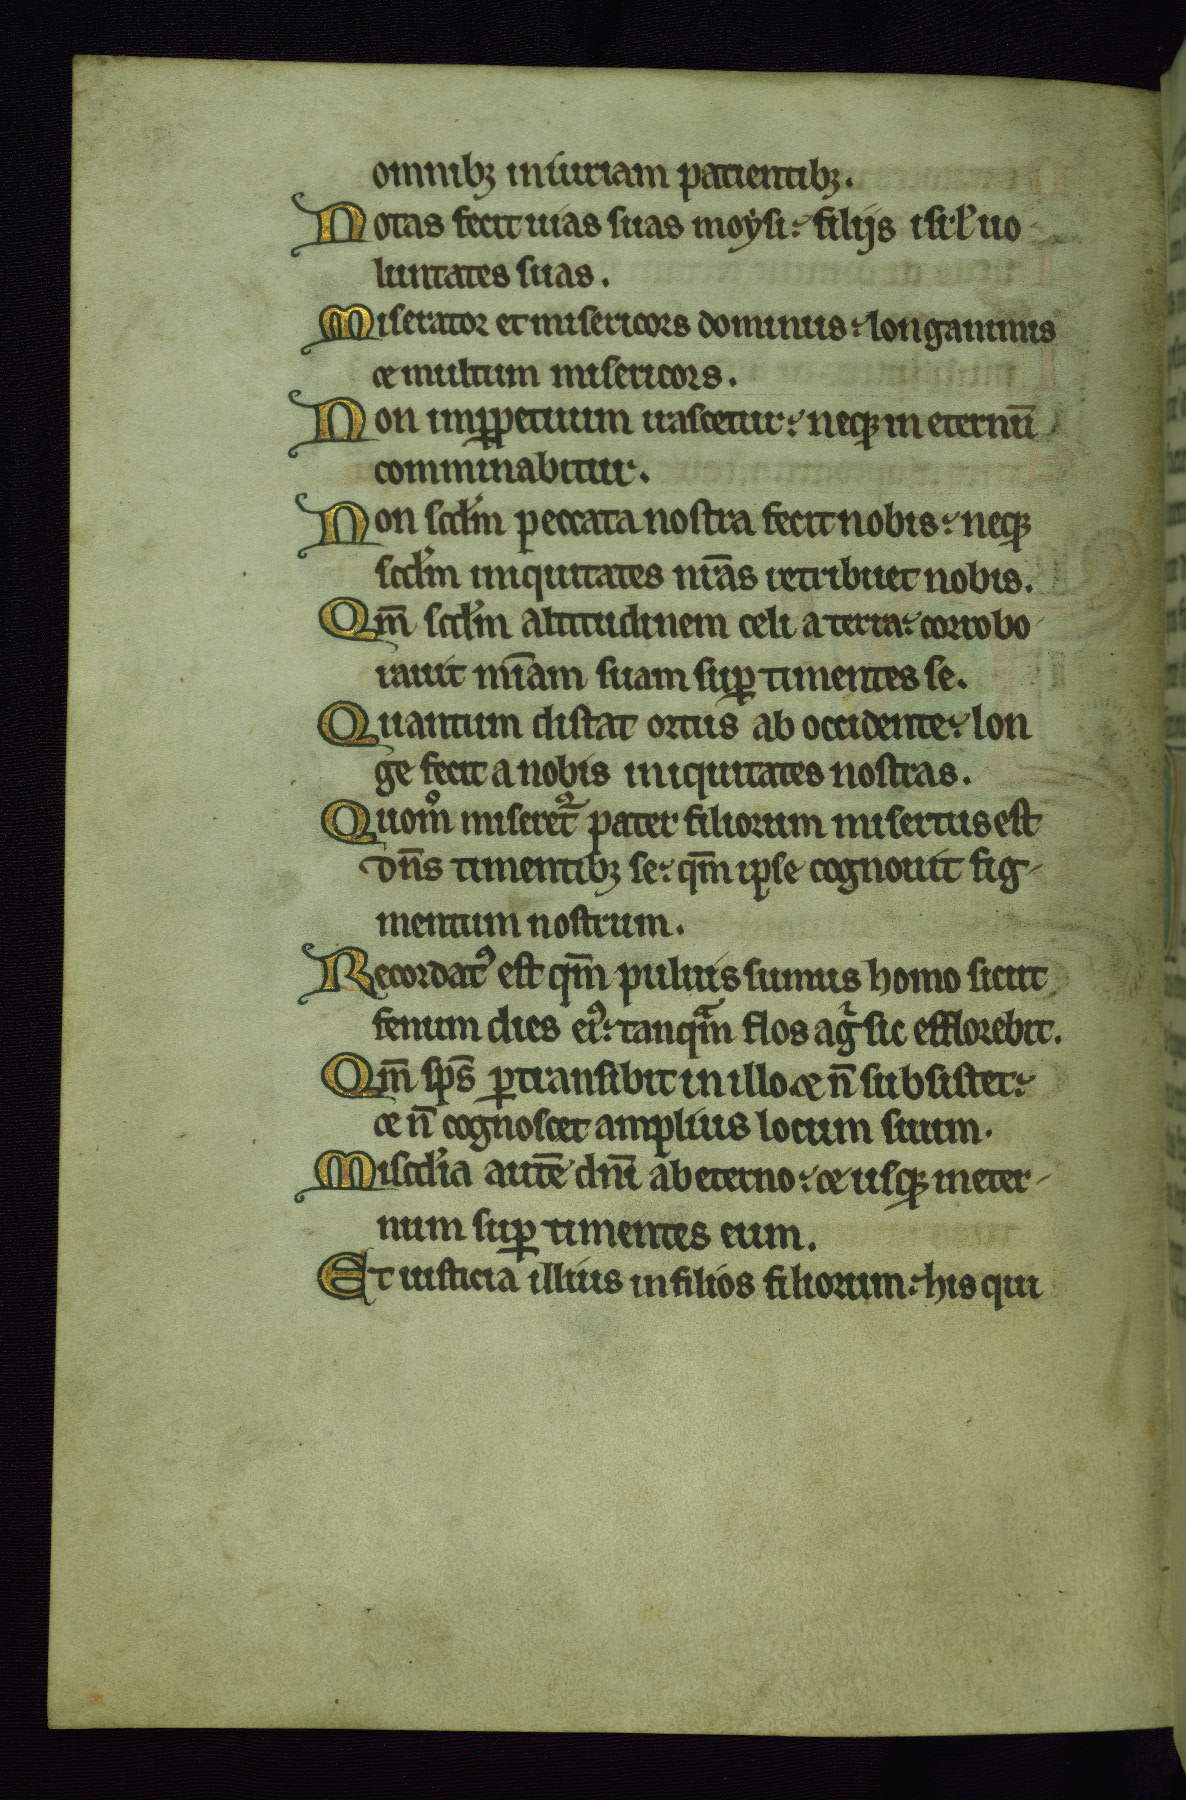 omnibꝫ iniuriam patientibꝫ.
Notas fecit uias suas moẏsi: filijs isrl̕ uo
luntates suas.
Miserator et misericors dominus: longanimis
et multum misericors.
Non imꝑpetuum irascetur: neqꝫ in eternū
comminabitur.
Non scd̕m peccata nostra fecit nobis: neqꝫ
scd̕m iniquitates nr̄as retribuet nobis.
Qm̄ scd̕m altitudinem celi a terra: corrobo
rauit mīam suam suꝑ timentes se.
Quantum distat ortus ab occidente: lon
ge fecit a nobis iniquitates nostras.
Quomᵒ miseretᷣ pater filiorum misertus est
dn̄s timentibꝫ se: qm̄ ipse cognouit fig-
mentum nostrum.
Recordatꝰ est qm̄ puluis sumus homo sicut
fenum dies eiꝰ: tanqᷓm flos agͥ sic efflorebit.
Qm̄ sp̄s ꝑtransibit in illo et n̄ subsistet:
et n̄ cognoscet amplius locum suum.
Miscd̕ia autē dn̄i ab eterno: et usqꝫ in eter-
num suꝑ timentes eum.
Et iusticia illius in filios filiorum: his qui